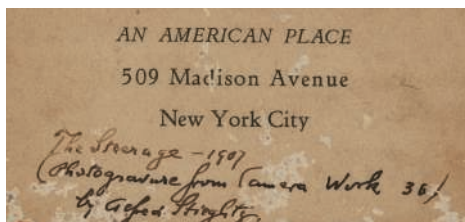 AN AMERICAN PLACE
509 Madison Avenue
New York City
The Steerage – 1907
(Photogravure from Camera Work 36)
by Alfred Stieglitz